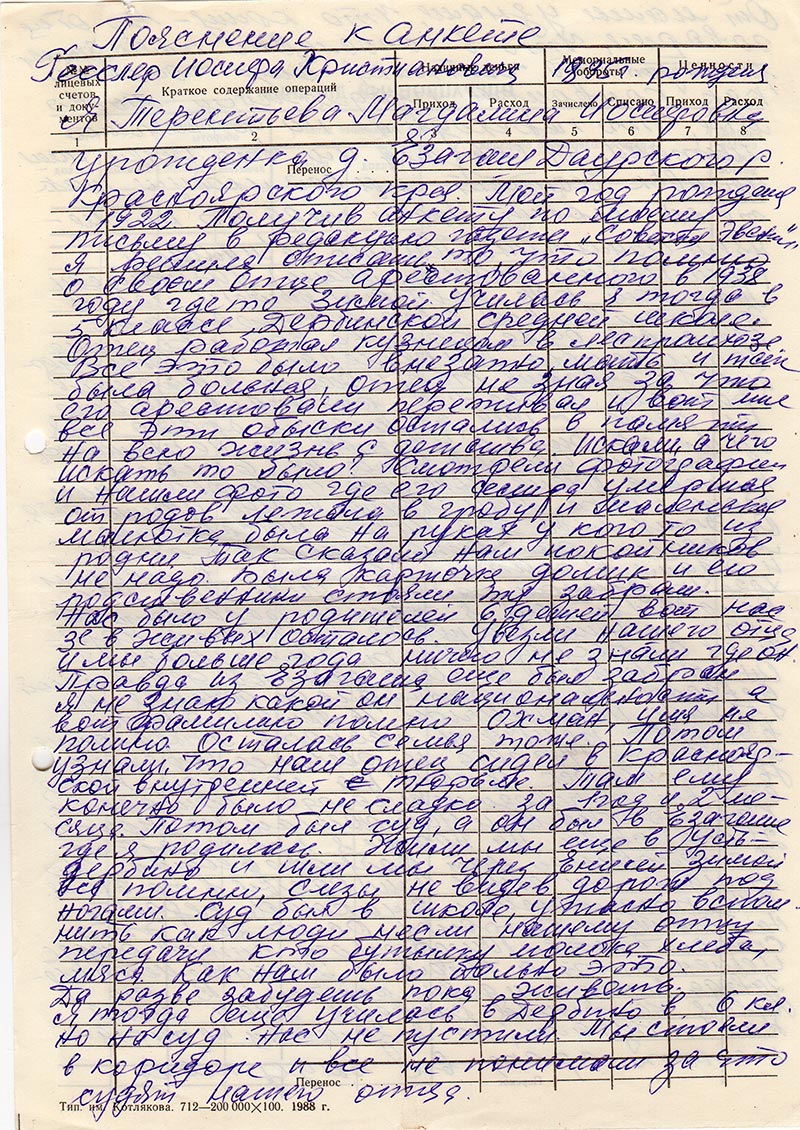 Пояснение к анкете
Гесслер Иосифа Христиановича рождения
лицевых счетов и документов
Краткое содержание операций
Мемориальные обороты
Ценности
Приход Расход Зачислено Списано Приход Расход
от Терентьева Магдалина Иосифовна
1 2 3 4 5 6 7 8
Уроженка д. Езагаш Даурского р.
Перенос . . .
Красноярского края. Мой год рождения
1922. Получив анкету по моему
письму в редакцию газеты „
я решила описать то, что помню
о своем отце арестованного в 1938
году где то зимой училась я тогда в
5 классе, Дербинской средней школе.
Отец работал кузнецом в леспромхозе.
Все это было внезапно мать и так
была больная, отец не зная за что
его арестовали переживал и вот мне
все эти обыски остались в памяти
на всю жизнь с детства. Искали, а чего
искать то было? Смотрели фотографии
и нашли фото где его сестра умершая
от родов лежала в гробу и маленькая
малютка была на руках у кого то из
родни так сказали нам покойников
не надо. Была карточка домик и его
родственники стояли то забрали.
Нас было у родителей 6 детей вот нас
3е в живых осталось. Увезли нашего отца
и мы больше года ничего не знали где он.
Правда из Езагаша еще был забран
я не знаю какой он национальности а
вот фамилию помню Охман, имя не
помню осталась семья тоже. Потом
узнали, что наш отец сидел в Краснояр-
ской внутренней тюрьме. Там ему
конечно было не сладко за 1 год и 2 ме-
сяца. Потом был суд, а он был в Езагаше
где я родилась. Жили мы еще в Усть-
Дербино и шли мы через Енисей зимой
все помню, слезы не видев дороги под
ногами. Суд был в школе, ужасно вспом-
нить как люди несли нашему отцу
передачи кто бутылку молока хлеба,
мяса. Как нам было больно это.
Да разве забудешь пока живать.
Я тогда училась в Дербино в 6 кл.
но на суд нас не пустили. Мы стояли
в коридоре и все не понимали за что
Перенос . . .
судят нашего отца.
Тип. им. Котлякова. 712—200 000×100. 1988 г.